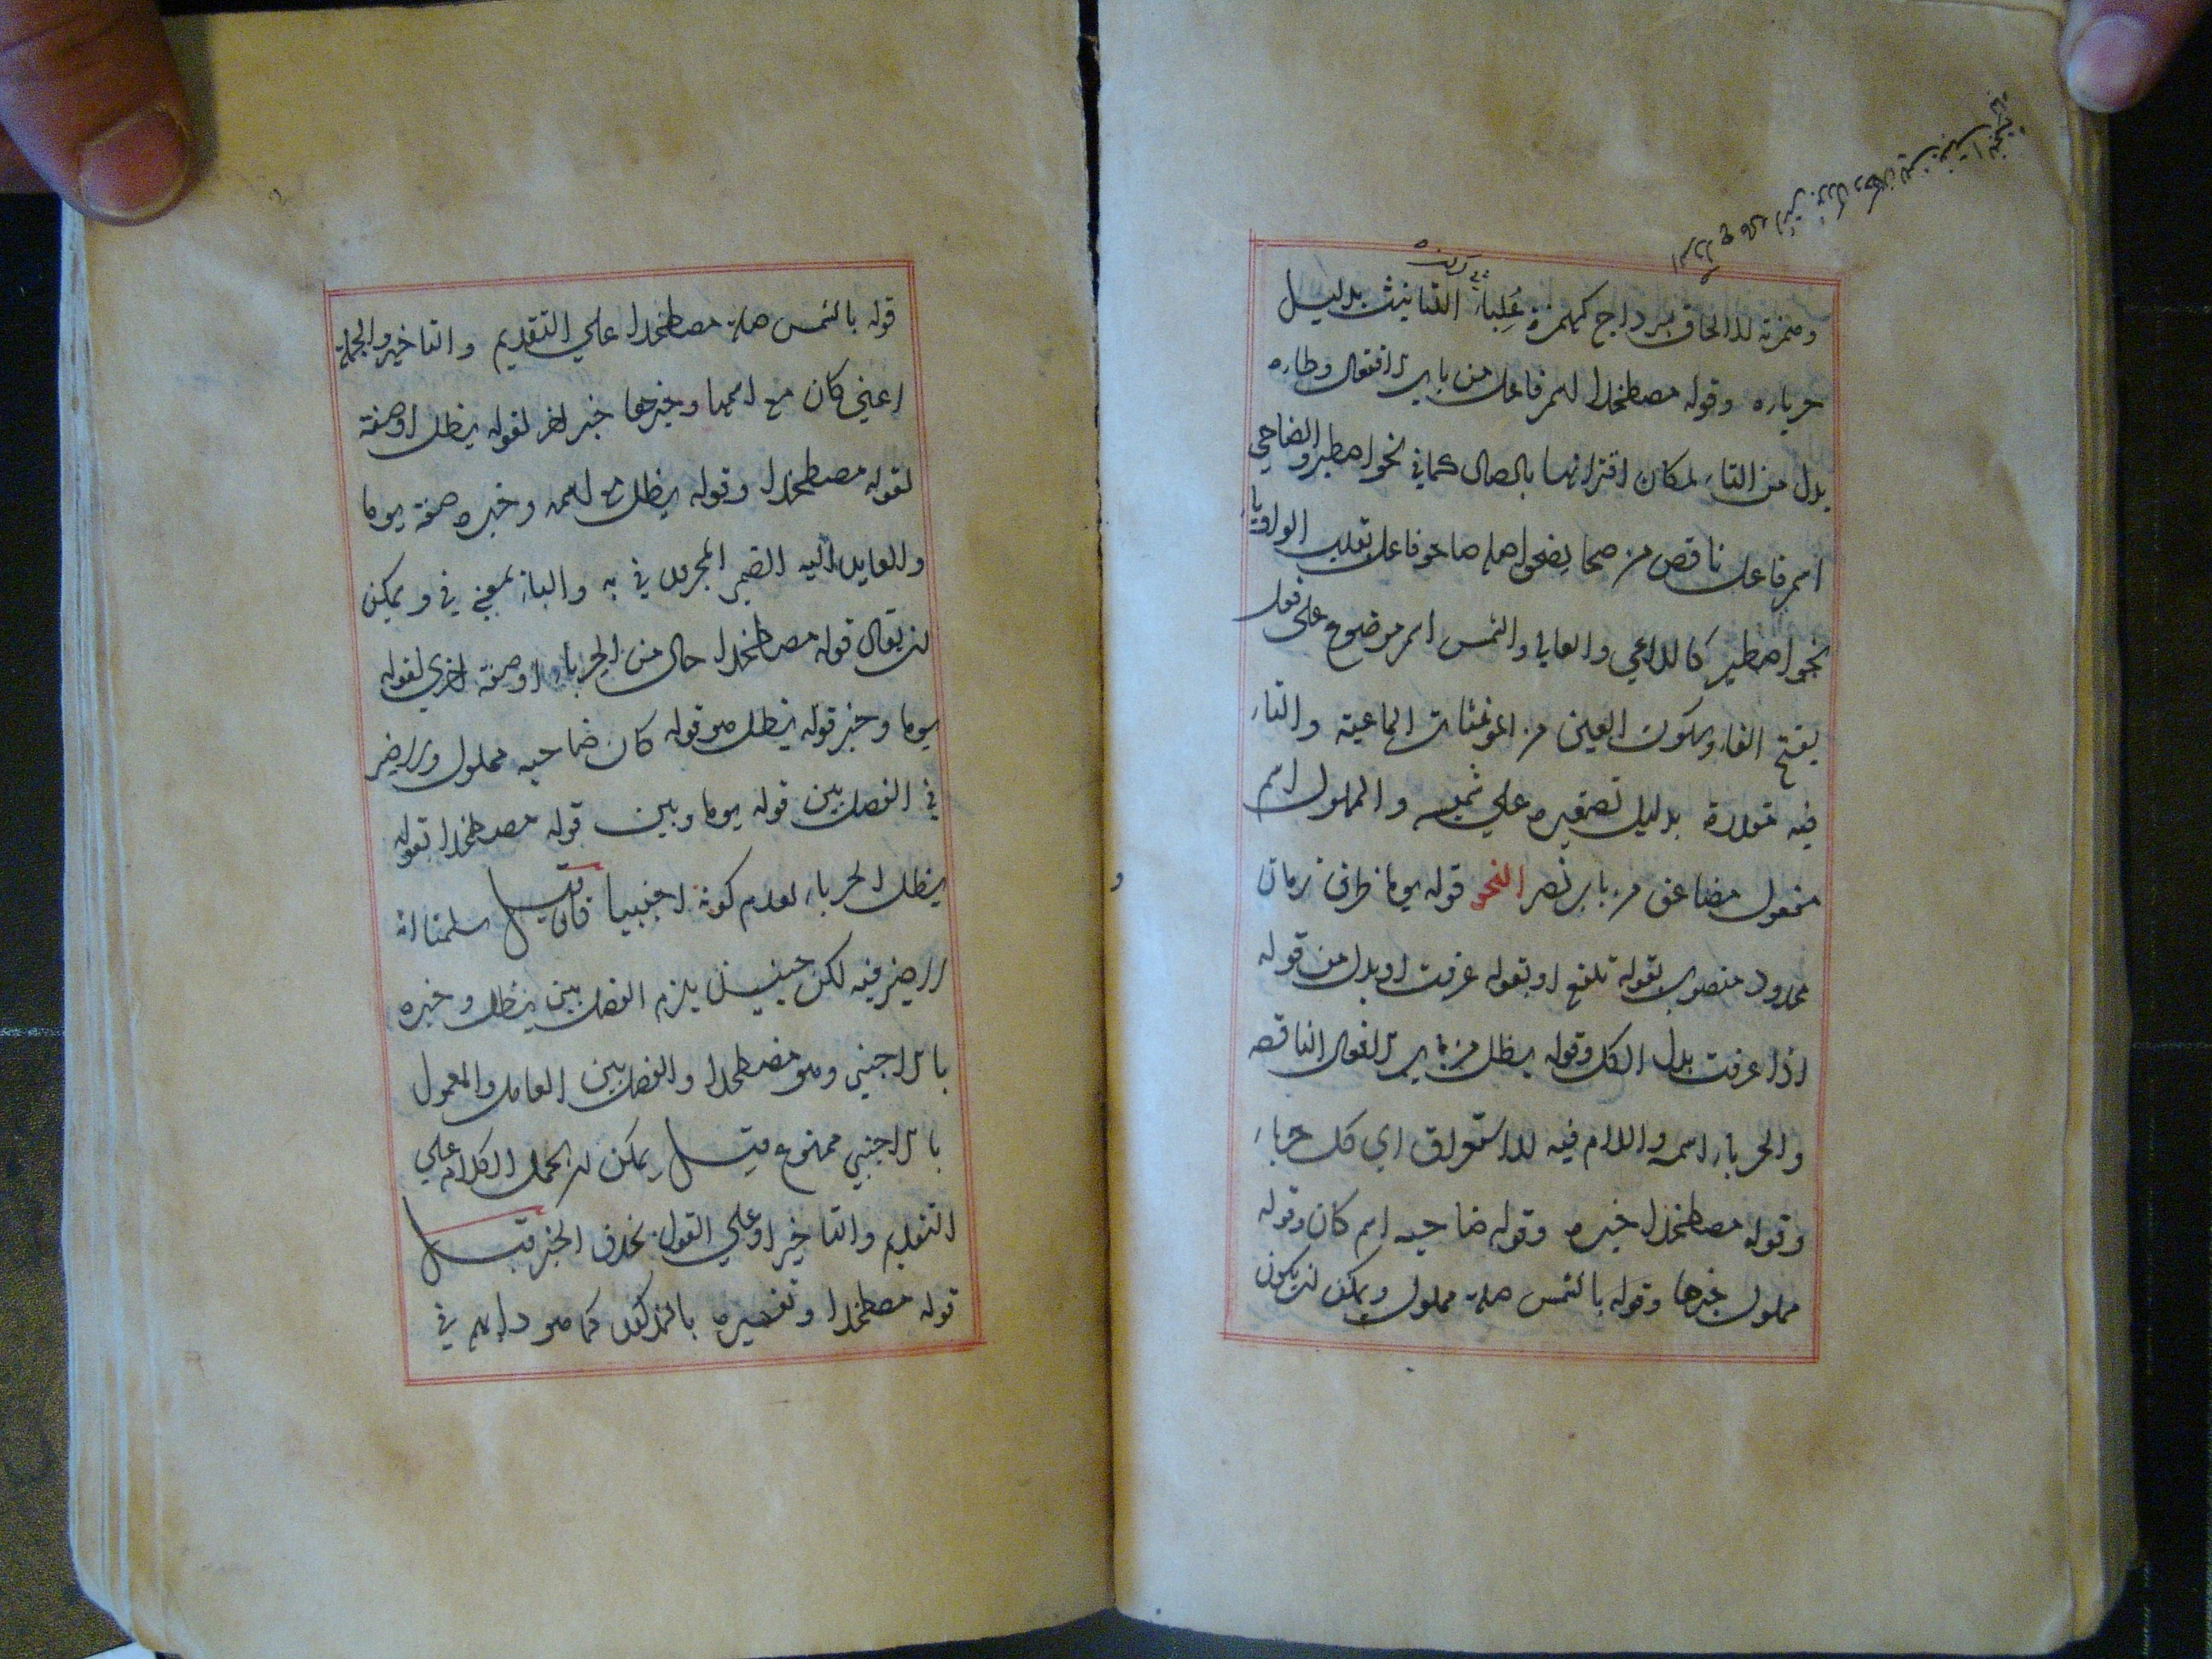 وهمزته للالحاق بسرداح كهمزة عِلباء التانيث بدليل
حرباءه وقوله مصطخدا اسم فاعل من باب الافتعال وطاءه
بدل من التاء لمكان اقترانها بالصاد كما في نحو اصطبر والضاحي
اسم فاعل ناقص من ضحا يضحو اصله ضاحو فاعل بقلب الواو ياء
نحو اصطبر كالداعي والعالي والشمس اسم موضوع على فعل
بفتح الفاء وسكون العين من المؤنثات السماعية والتاء
فيه مقدرة بدليل تصغيره علي شميسه والمملول اسم
مفعول مضاعف من باب نصر النحو قوله يوما ظرف زمان
محدود منصوب بقوله تلفع او بقوله عرقت او بدل من قوله
اذا عرقت بدل الكل وقوله يظل من باب الافعال الناقصه
والحرباء اسمه واللام فيه للاستغراق اي كل حرباء
وقوله مصطخدا خبره وقوله ضاحيه اسم كان وقوله
مملول خبرها وقوله بالشمس صلة مملول ويمكن ان يكون
قوله بالشمس صلة مصطخدا علي التقديم والتاخير والجملة
اعني كان مع اسمها وخبرها خبر اخر لقوله يظل او صفة
لقوله مصطخدا وقوله يظل مع اسمه وخبره صفة يوما
والعايد اليه الضمير المجرور في به والباء بمعني في ويمكن
ان يقال قوله مصطخدا حال من الحرباء او صفة اخري لقوله
يوما وخبر قوله يظل هو قوله كان ضاحيه مملول ولا ضير
في الفصل بين قوله يوما وبين قوله مصطخدا بقوله
يظل الحرباء لعدم كونه اجنبيا فان قيل سلمنا انه
لا ضير فيه لكن حينئذ يلزم الفصل بين يظل وخبره
بالاجنبي وهو مصطخدا والفصل بين العامل والمعمول
بالاجنبي ممنوع قيل يمكن ان يحمل الكلام علي
التقديم والتاخير او علي القول بحذف الخبر قبل
قوله مصطخدا وتفسيره بالمذكور كما هو دابهم في